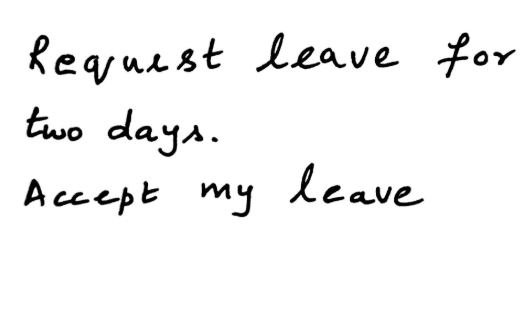 Request leave for
two days.
Accept my leave